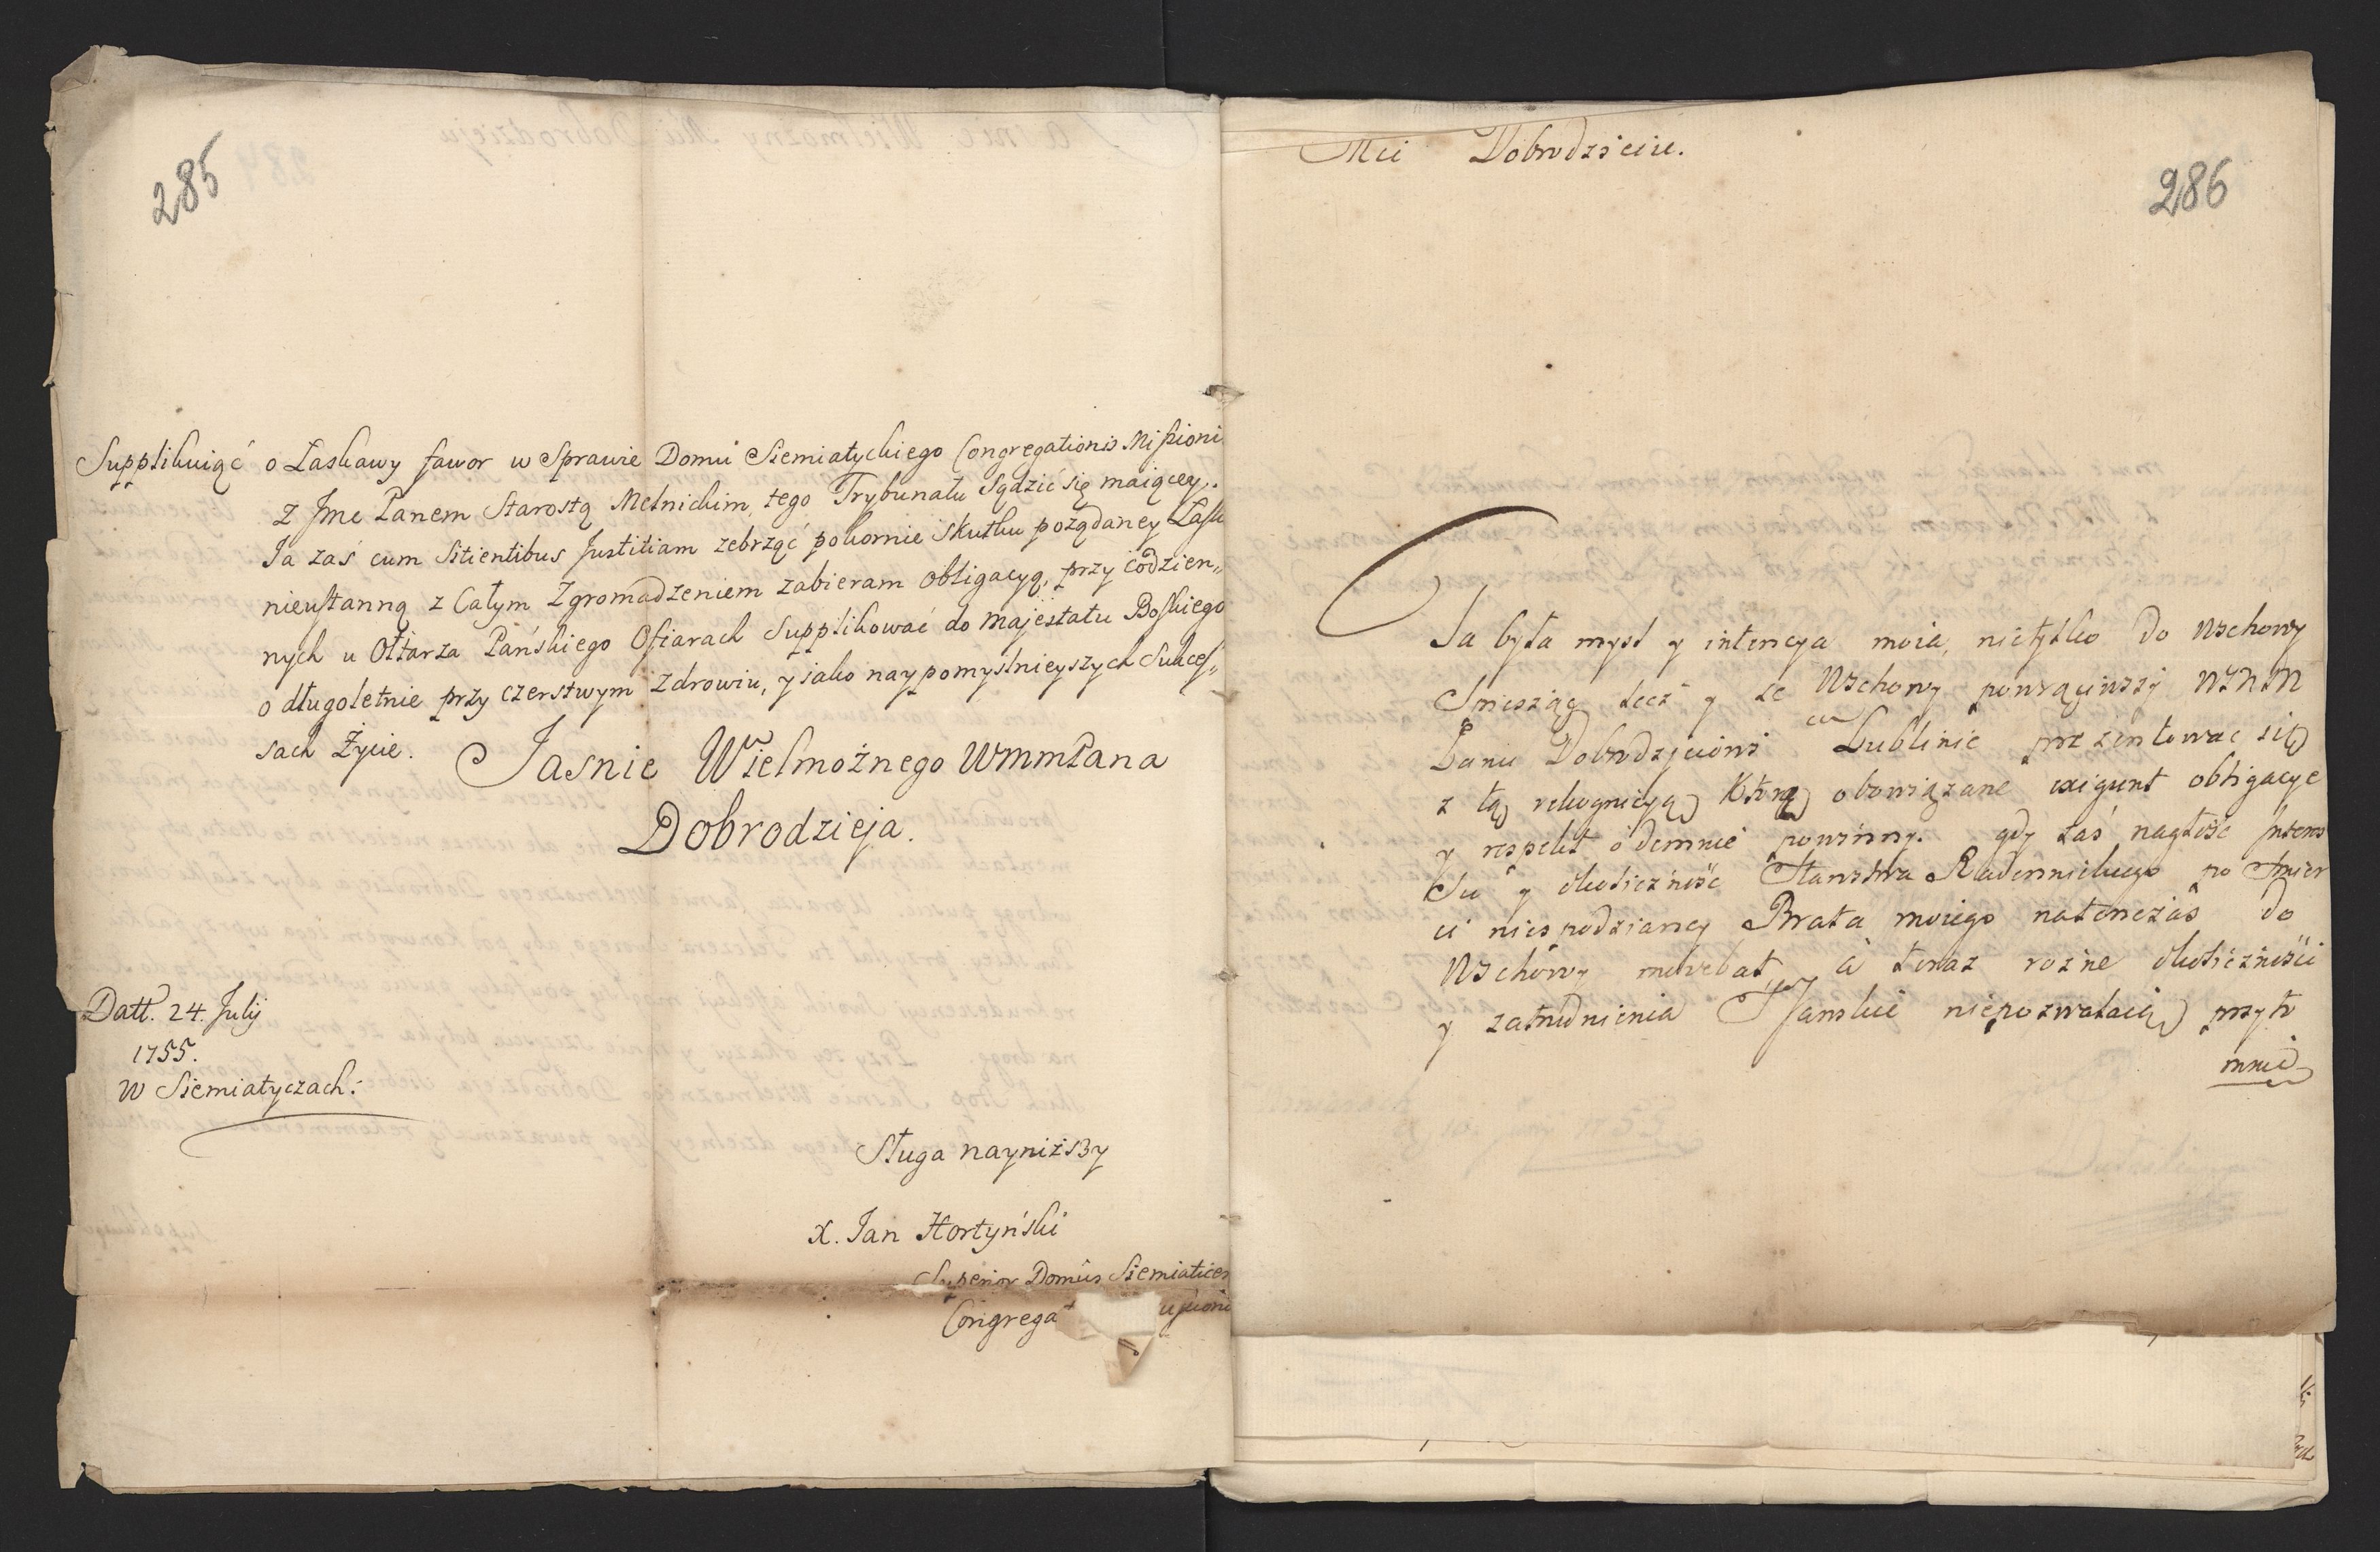 285
Supplikuiąc o Łaskawy fawor w Sprawie Domu Siemiatyckiego Congregationis Missioni
z Jmc Panem Starostą Melnickim, tego Trybunału Sądzić się maiącey.
Ja zaś cum Sitientibus Justitiam zebrząć pokornie skutku pożądaney Łask
nieustanną z Całym Zgromadzeniem zabieram obligacyą, przy codzien„
nych u Ołtarza Pańskiego Ofiarach Supplikować do Majestatu Boskiego
o długoletnie przy czerstwym zdrowiu, y iako naypomyslnieyszych Sukces„
sach Życie. Jasnie Wielmożnego WMMPana
Dobrodzieja.
Datt. 24. Julij
1755.
W Siemiatyczach:
Sługa nayniższy
X. Jan Hortyński
Superior Domûs Siemiaticen
Congrega
286
Mci Dobrodzieiu.
Ta była mysl y intencya moia, nietylko do Wschowy
Spiesząc lecz y ze Wschowy powraciwszy
Panu Dobrodzieiowi w Lublinie prezentować się
z tą rekognicyą Którą obowiązane exigunt obligacye
y respekt odemnie powinny. gdy zaś nagłość
su y okoliczność Starostwa po Smier
ci niespodzianey Brata moiego natenczas do
Wschowy a teraz rozne okolicznosci
y zatrudnienia niepozwalaią przyto
mnie